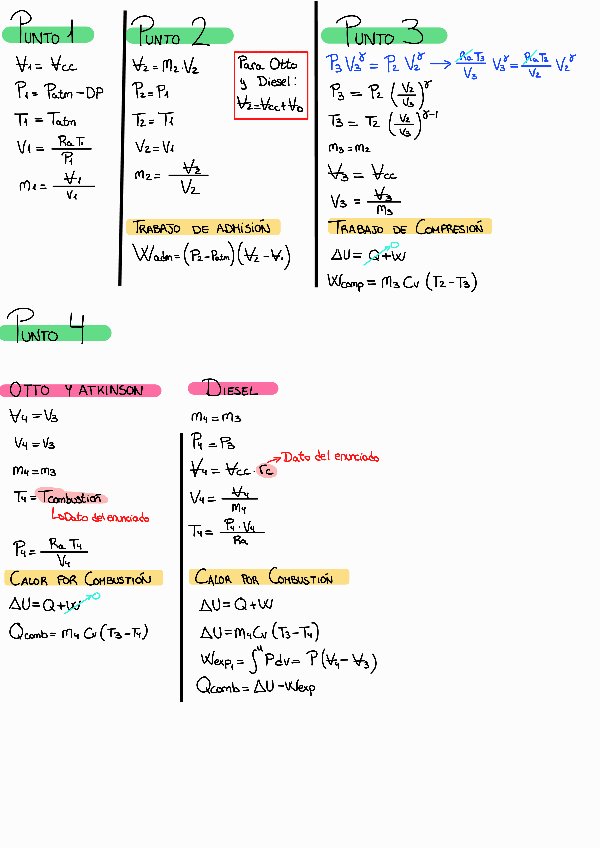 PUNTO 1
V1 = Vcc
P1 = Patm - DP
T1 = Tatm
V1 = Ra T1 / P1
m1 = V1 / V1
PUNTO 2
V2 = m2 · V2
P2 = P1
T2 = T1
V2 = V1
m2 = V2 / V2
Para Otto
y Diesel:
V2 = Vcc + VD
TRABAJO DE ADMISIÓN
Wadm = (P2 - Patm) (V2 - V1)
PUNTO 3
P3 V3^γ = P2 V2^γ → Ra T3 / V3 V3^γ = Ra T2 / V2 V2^γ
P3 = P2 (V2 / V3)^γ
T3 = T2 (V2 / V3)^γ-1
m3 = m2
V3 = Vcc
V3 = V3 / m3
TRABAJO DE COMPRESIÓN
ΔU = Q + W
0
Wcomp = m3 Cv (T2 - T3)
PUNTO 4
OTTO Y ATKINSON
V4 = V3
V4 = V3
m4 = m3
T4 = Tcombustión
↳ Dato del enunciado
P4 = Ra T4 / V4
CALOR POR COMBUSTIÓN
ΔU = Q + W
0
Qcomb = m4 Cv (T3 - T4)
DIESEL
m4 = m3
P4 = P3
V4 = Vcc · rc → Dato del enunciado
V4 = V4 / m4
T4 = P4 · V4 / Ra
CALOR POR COMBUSTIÓN
ΔU = Q + W
ΔU = m4 Cv (T3 - T4)
Wexp1 = ∫ 4 Pdv = P (V4 - V3)
Qcomb = ΔU - Wexp